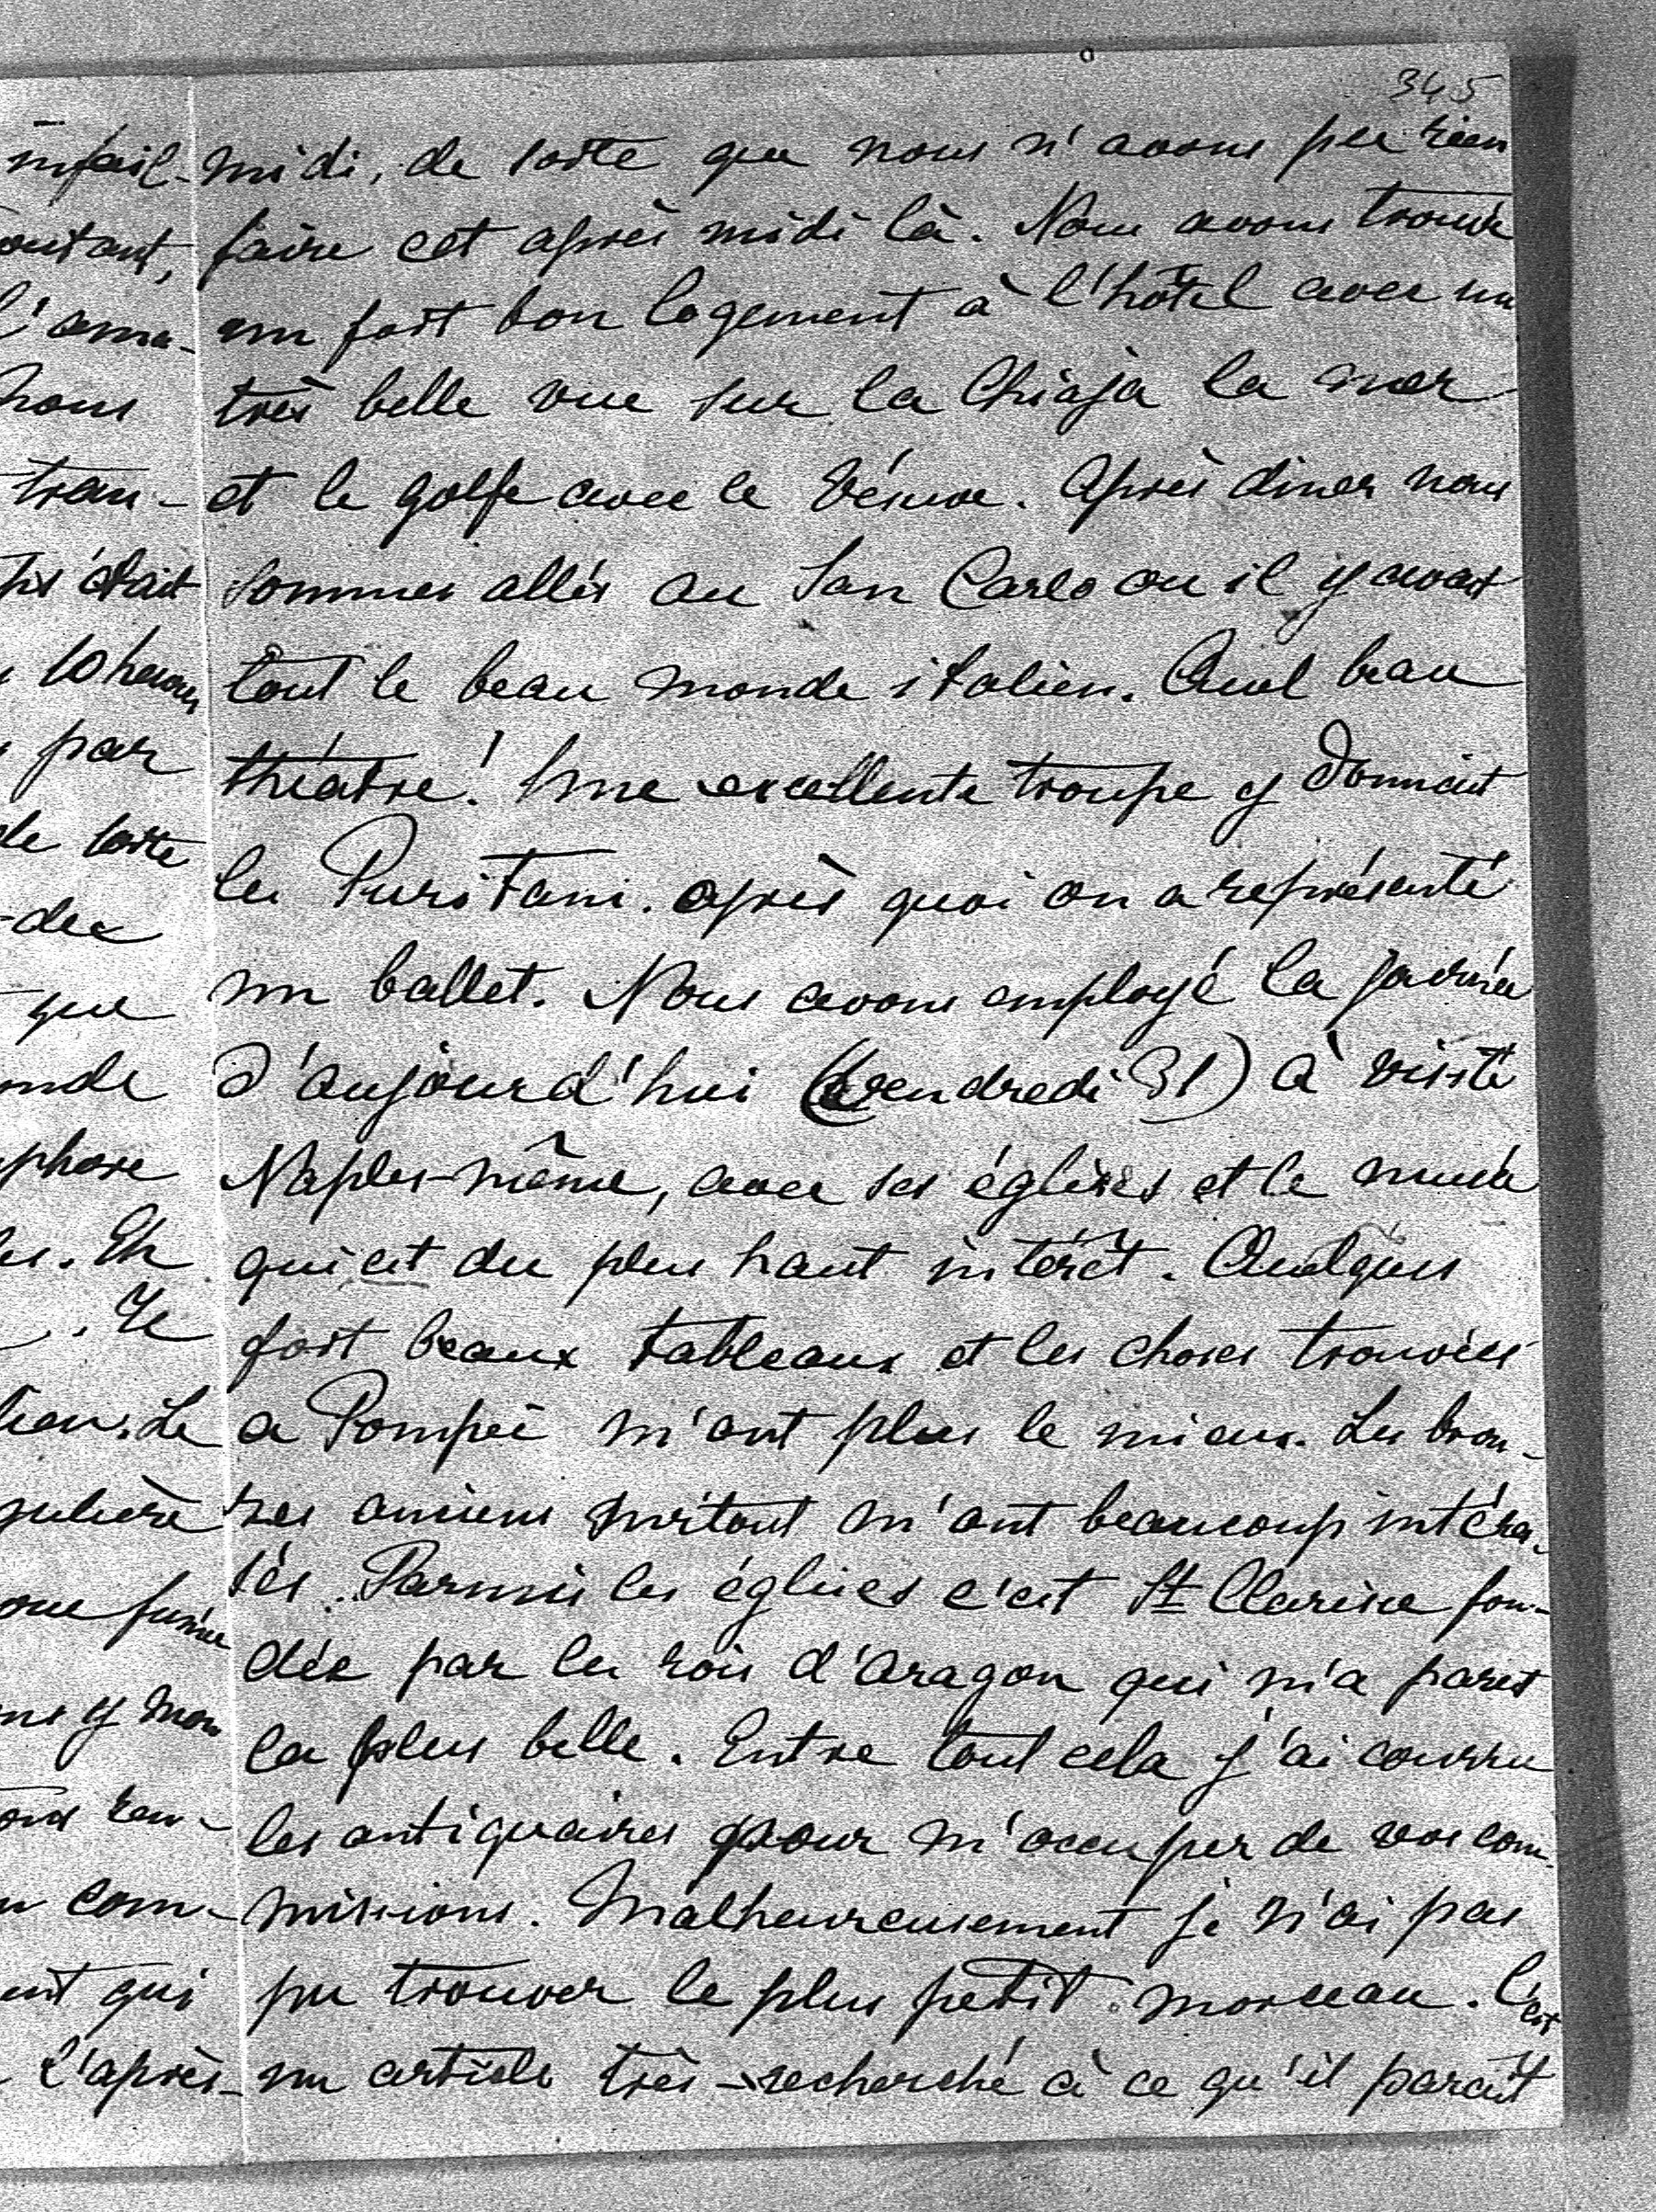 345
midi, de sorte que nous n'avons pu rien
faire cet après midi là. Nous avons trouvé
un fort bon logement à l'hôtel avec un
très belle vue sur la Chiaja la mer
et le golfe avec le Vésuve. Après diner nous
sommes allés au San Carlo ou il y avait
tout le beau monde italien. Quel beau
théatre! Une excellente troupe y donnait
les Puritani. après quoi on a représenté
un ballet. Nous avons employé la journée
d'aujourd'hui (vendredi 31) à visité
Naples-même, avec ses églises et le musée
qui est du plus haut intérêt. Quelques
fort beaux tableaux et les choses trouvées
a Pompéi m'ont plus le mieux. Les bron-
zes anciens surtout m'ont beaucoup intéres-
sés. Parmis les églises c'est St Clarisse fon-
dée par les rois d'Aragon qui m'a paret
la plus belle. Entre tout cela j'ai courru
les antiquaires pour m'occuper de vos com-
missions. Malheureusement je n'ai pas
pu trouver le plus petit morceau. C'est
un article très-recherché à ce qu'il parait
outant,
l'ama-
nous
tran-
était
10 heures
par
de sorte
que
phore
Eh
. Je
Le
fumée
y mon
com-
qui
L'après-